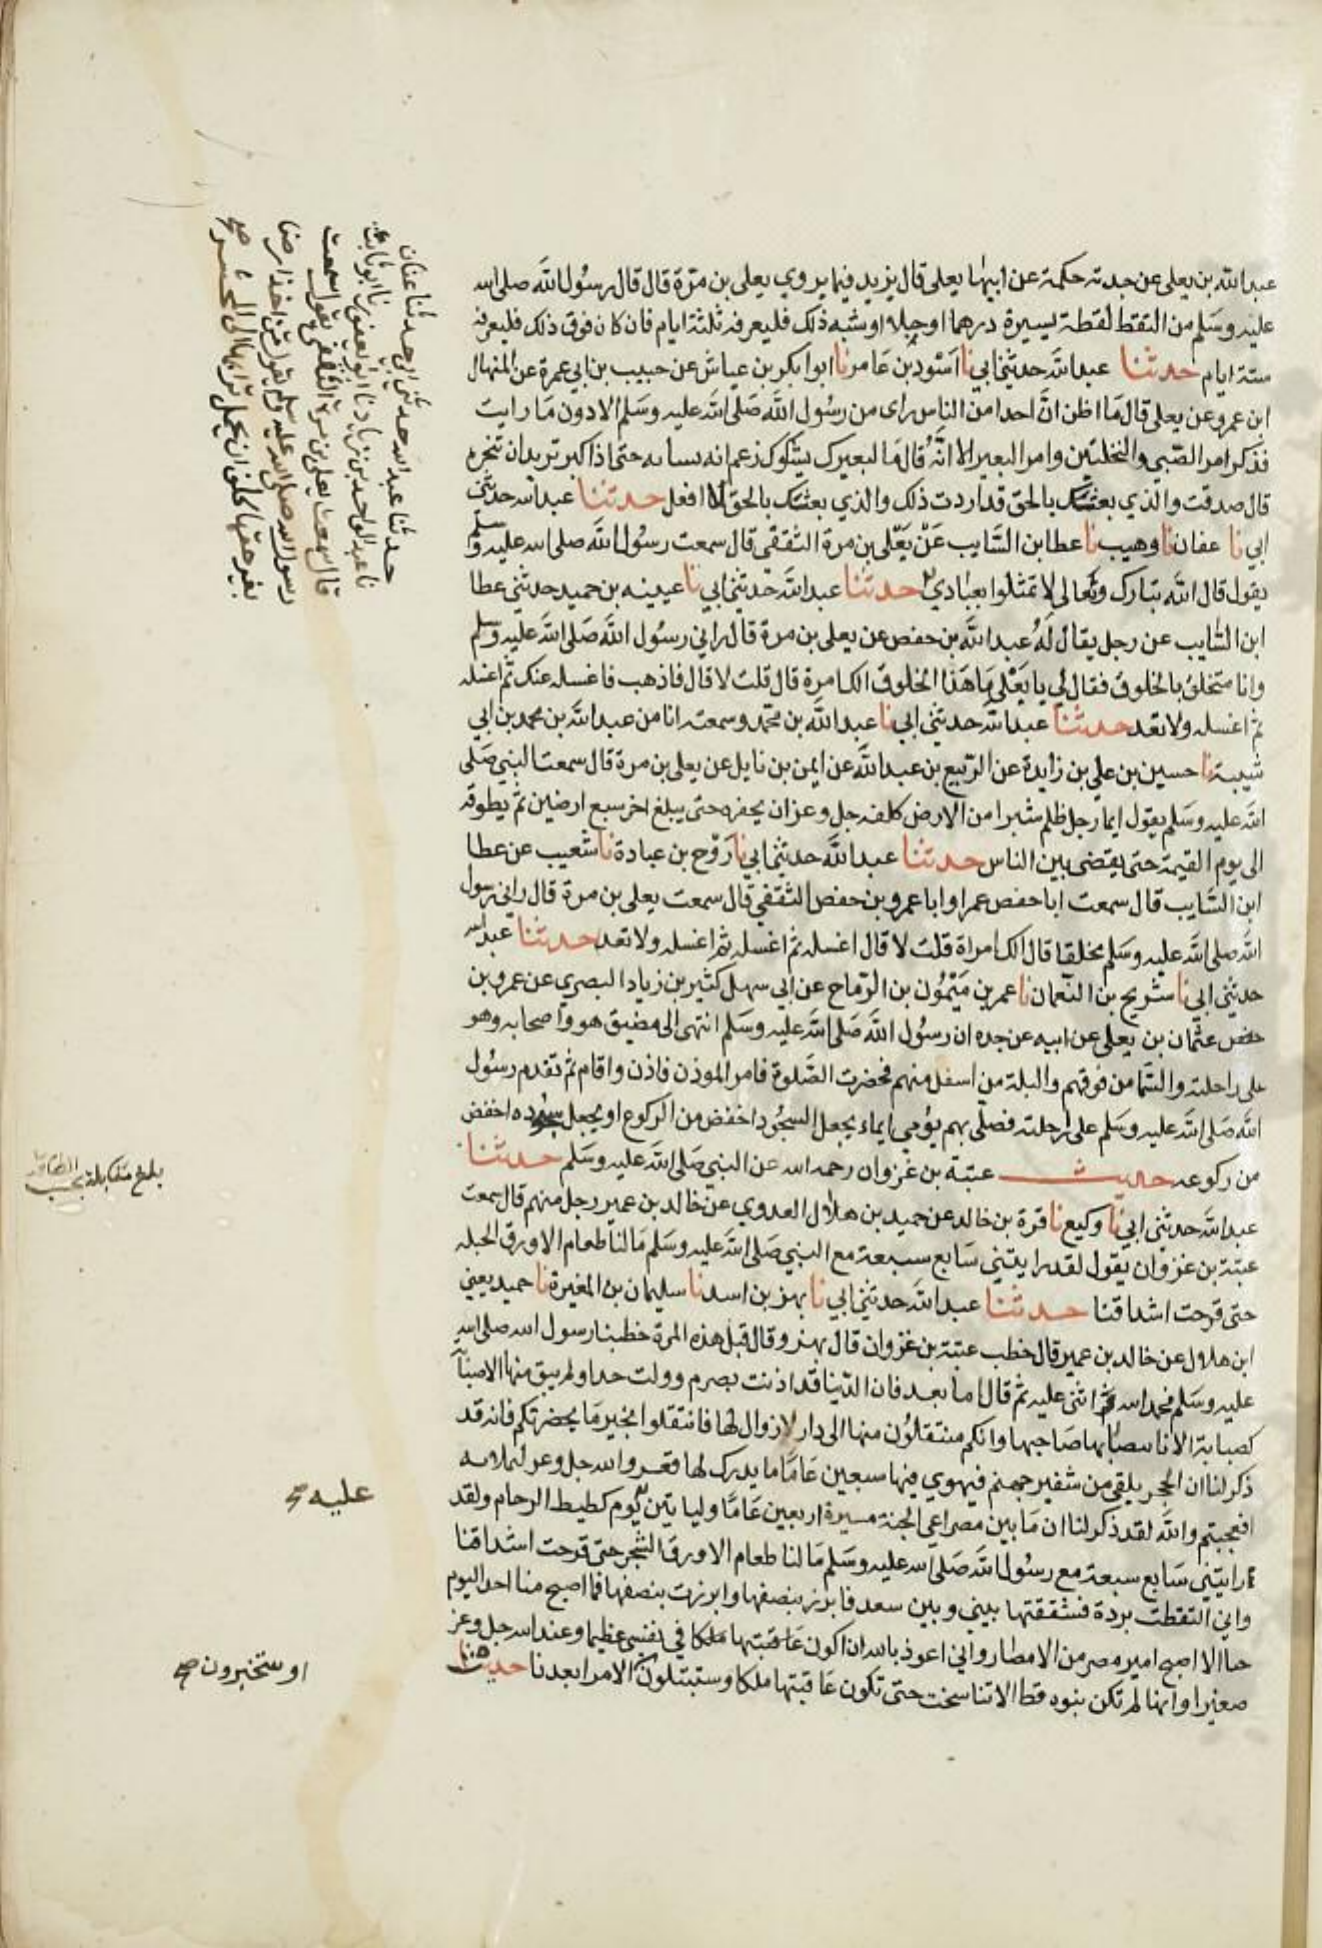 عبد الله بن يعلى عن جدته حكمة عن ابيها يعلى قال يزيد فيما يروي يعلى بن مرة قال قال رسول الله صلى الله
عليه وسلم من التقط لقطة يسيرة درهما او حبلا او شبه ذلك فليعرفه ثلثة ايام فان كان فوق ذلك فليعرفه
ستة ايام حدثنا عبد الله حدثني ابي نا اسود بن عامر نا ابو بكر بن عياش عن حبيب بن ابي عمرة عن المنهال
ابن عمرو عن يعلى قال ما اظن ان احدا من الناس راى من رسول الله صلى الله عليه وسلم الا دون ما رايت
فذكر امر الصبي والنخلتين وامر البعير الا انه قال ما لبعيرك يشكوك زعم انه حتى اذا كبر تريد ان تنحره
قال صدقت والذي بعثك بالحق قد اردت ذلك والذي بعثك بالحق لا افعل حدثنا عبد الله حدثني
ابي نا عفان نا وهيب نا عطا بن السايب عن يعلى بن مرة الثقفي قال سمعت رسول الله صلى الله عليه وسلم
يقول قال الله تبارك وتعالى لا تمثلوا بعبادي حدثنا عبد الله حدثني ابي نا عبيده بن حميد حدثني عطا
ابن السايب عن رجل يقال له عبد الله بن حفص عن يعلى بن مرة قال راني رسول الله صلى الله عليه وسلم
وانا متخلق بالخلوق فقال لي يا يعلى ما هذا الخلوق الك امرة قال قلت لا قال فاذهب فاغسله عنك ثم اغسله
ثم اغسله ولا تعد حدثنا عبد الله حدثني ابي نا عبد الله بن محمد وسمعته انا من عبد الله بن محمد بن ابي
شيبة نا حسين بن علي بن زايدة عن الربيع بن عبد الله عن ايمن بن نايل عن يعلى بن مرة قال سمعت النبي صلى
الله عليه وسلم يقول ايما رجل ظلم شبرا من الارض كلفه جل وعز ان يحفره حتى يبلغ اخر سبع ارضين ثم يطوقه
الى يوم القيمة حتى يقضى بين الناس حدثنا عبد الله حدثني ابي نا روح بن عبادة نا شعيب عن عطا
ابن السايب قال سمعت ابا حفص عمر او ابا عمرو بن حفص الثقفي قال سمعت يعلى بن مرة قال راني رسول
الله صلى الله عليه وسلم مخلقا قال الك امراة قلت لا قال اغسله ثم اغسله ثم اغسله ولا تعد حدثنا عبد الله
حدثني ابي نا سريج بن النعمان نا عمر بن ميمون بن الرماح عن ابي سهل كثير بن زياد البصري عن عمرو بن
عثمان بن يعلى عن ابيه عن جده ان رسول الله صلى الله عليه وسلم انتهى الى مضيق هو واصحابه وهو
على راحلته والسما من فوقهم والبلة من اسفل منهم فحضرت الصلوة فامر الموذن فاذن واقام ثم تقدم رسول
الله صلى الله عليه وسلم على راحلته فصلى بهم يومي ايماء يجعل السجود اخفض من الركوع او يجعل سجوده اخفض
من ركوعه حديث عتبة بن غزوان رحمه الله عن النبي صلى الله عليه وسلم حدثنا
عبد الله حدثني ابي نا وكيع نا قرة بن خالد عن حميد بن هلال العدوي عن خالد بن عمير رجل منهم قال سمعت
عتبة بن غزوان يقول لقد رايتني سابع سبعة مع النبي صلى الله عليه وسلم ما لنا طعام الا ورق الحبله
حتى قرحت اشداقنا حدثنا عبد الله حدثني ابي نا بهز بن اسد نا سليمان بن المغيرة نا حميد يعني
ابن هلال عن خالد بن عمير قال خطب عتبة بن غزوان قال بهز وقال قبل هذه المرة خطبنا رسول الله صلى الله
عليه وسلم فحمد الله واثنى عليه ثم قال اما بعد فان الدنيا قد اذنت بصرم وولت حذا ولم يبق منها الا صبابة
كصبابة الانا يصبابها صاحبها وانكم منتقلون منها الى دار لا زوال لها فانتقلوا بخير ما يحضرتكم فانه قد
ذكر لنا ان الحجر يلقى من شفير جهنم فيهوي فيها سبعين عاما ما يدرك لها قعر والله جل وعز لتملانه
افعجبتم والله لقد ذكر لنا ان ما بين مصراعي الجنة مسيرة اربعين عاما ولياتين يوم كظيظ الزحام ولقد
رايتني سابع سبعة مع رسول الله صلى الله عليه وسلم ما لنا طعام الا ورق الشجر حتى قرحت اشداقنا
واني التقطت بردة فشققتها بيني وبين سعد فاتزر بنصفها واتزرت بنصفها فما اصبح منا احد اليوم
حيا الا اصبح امير مصر من الامصار واني اعوذ بالله ان اكون في نفسي عظيما وعند الله جل وعز
صغيرا وانها لم تكن نبوه قط الا تناسخت حتى تكون عاقبتها ملكا وستبتلون الامرا بعدنا حديث
حدثنا عبد الله حدثني ابي حدثنا عفان
نا عبد الواحد بن زياد نا ابو يعفور نا ابو ثابت
قال سمعت يعلى بن مرة الثقفي يقول سمعت
رسول الله صلى الله عليه وسلم يقول من اخذ ارضا
بغير حقها كلف ان يحمل ترابها الى المحشر صح
بلغ مقابلة بحسب الطاقة
عليه صح
او ستخبرون صح